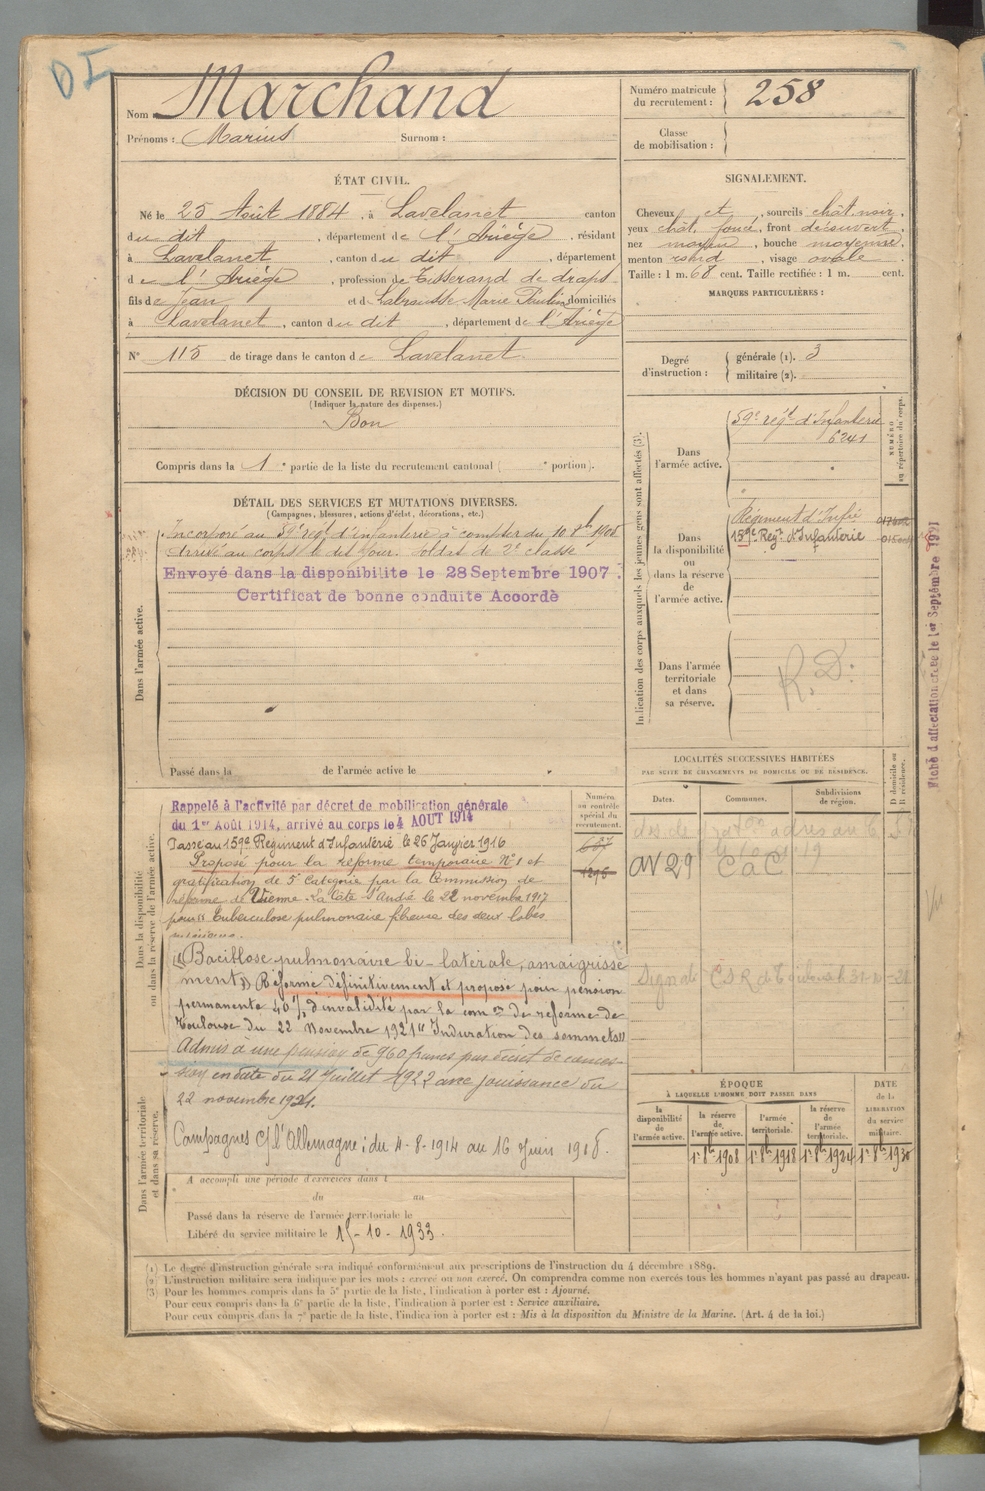 Nom : Marchand
Prénoms : Marius Surnom :
Numéro matricule du recrutement : 258
Classe de mobilisation :
ÉTAT CIVIL.
Né le 25 Août 1884, à Lavelanet canton
du dit, département de l'Ariège, résidant
à Lavelanet, canton du dit, département
de l'Ariège, profession de Tisserand de draps
fils de Jean et d Marie domiciliés
à Lavelanet, canton du dit, département de l'Ariège
N° 115 de tirage dans le canton de Lavelanet.
SIGNALEMENT.
Cheveux et, sourcils chât noir,
yeux chât. foncé, front découvert,
nez moyen, bouche moyenne,
menton rond, visage ovale.
Taille : 1 m. 68 cent. Taille rectifiée : 1 m. cent.
MARQUES PARTICULIÈRES :
Degré d'instruction : générale (1). 3
militaire (2).
DÉCISION DU CONSEIL DE REVISION ET MOTIFS.
(Indiquer la nature des dispenses.)
Bon
Compris dans la 1e partie de la liste du recrutement cantonal ( e portion).
DÉTAIL DES SERVICES ET MUTATIONS DIVERSES.
(Campagnes, blessures, actions d'éclat, décorations, etc.)
Dans l'armée active.
Incorporé au 59e régt d'infanterie à compter du 10 8bre 1905
Arrivé au corps le dit jour. Soldat de 2e classe
Envoyé dans la disponibilite le 28 Septembre 1907.
Certificat de bonne conduite Accordé
Passé dans la de l'armée active le
Indication des corps auxquels les jeunes gens sont affectés (3).
NUMÉRO au répertoire du corps.
Dans l'armée active.
59e régt d'Infanterie
6241
Dans la disponibilité ou dans la réserve de l'armée active.
Régiment d'Infie
159e Regt d'Infanterie
Dans l'armée territoriale et dans sa réserve.
R. D.
Fiche d'affectation créée le 1er Septembre 1921
LOCALITÉS SUCCESSIVES HABITÉES
PAR SUITE DE CHANGEMENTS DE DOMICILE OU DE RÉSIDENCE.
Dates. Communes. Subdivisions de région. D domicile ou R résidence.
AV 29 CaC
Dans la disponibilité ou dans la réserve de l'armée active.
Numéro au contrôle spécial du recrutement.
Rappelé à l'activité par décret de mobilisation générale
du 1er Août 1914, arrivé au corps le 4 AOUT 1914
Passé au 159e Régiment d'Infanterie le 26 Janvier 1916
Proposé pour la réforme temporaire N°1 et
gratification de 5e Catégorie par la Commission de
réforme de Vienne. La Côte St André le 22 novembre 1917
pour "Tuberculose pulmonaire fibreuse des deux lobes
"Bacillose pulmonaire bi-latérale, amaigrisse
ment" Réformé définitivement et proposé pour pension
permanente 40% d'invalidité par la comon de réforme de
Toulouse du 22 Novembre 1921 "Induration des sommets"
Admis à une pension de 960 francs par décret de conces-
sion en date du 21 Juillet 1922 avec jouissance du
22 novembre 1921.
Campagnes c/ l'Allemagne : du 4-8-1914 au 16 Juin 1918.
Dans l'armée territoriale et dans sa réserve.
A accompli une période d'exercices dans l
du au
Passé dans la réserve de l'armée territoriale le
Libéré du service militaire le 15-10-1933.
ÉPOQUE
À LAQUELLE L'HOMME DOIT PASSER DANS
DATE de la LIBÉRATION du service militaire.
la disponibilité de l'armée active. la réserve de l'armée active. l'armée territoriale. la réserve de l'armée territoriale.
1er 8bre 1908 1er 8bre 1918 1er 8bre 1924 1er 8bre 1930
(1) Le degré d'instruction générale sera indiqué conformément aux prescriptions de l'instruction du 4 décembre 1889.
(2) L'instruction militaire sera indiquée par les mots : exercé ou non exercé. On comprendra comme non exercés tous les hommes n'ayant pas passé au drapeau.
(3) Pour les hommes compris dans la 5e partie de la liste, l'indication à porter est : Ajourné.
Pour ceux compris dans la 6e partie de la liste, l'indication à porter est : Service auxiliaire.
Pour ceux compris dans la 7e partie de la liste, l'indication à porter est : Mis à la disposition du Ministre de la Marine. (Art. 4 de la loi.)